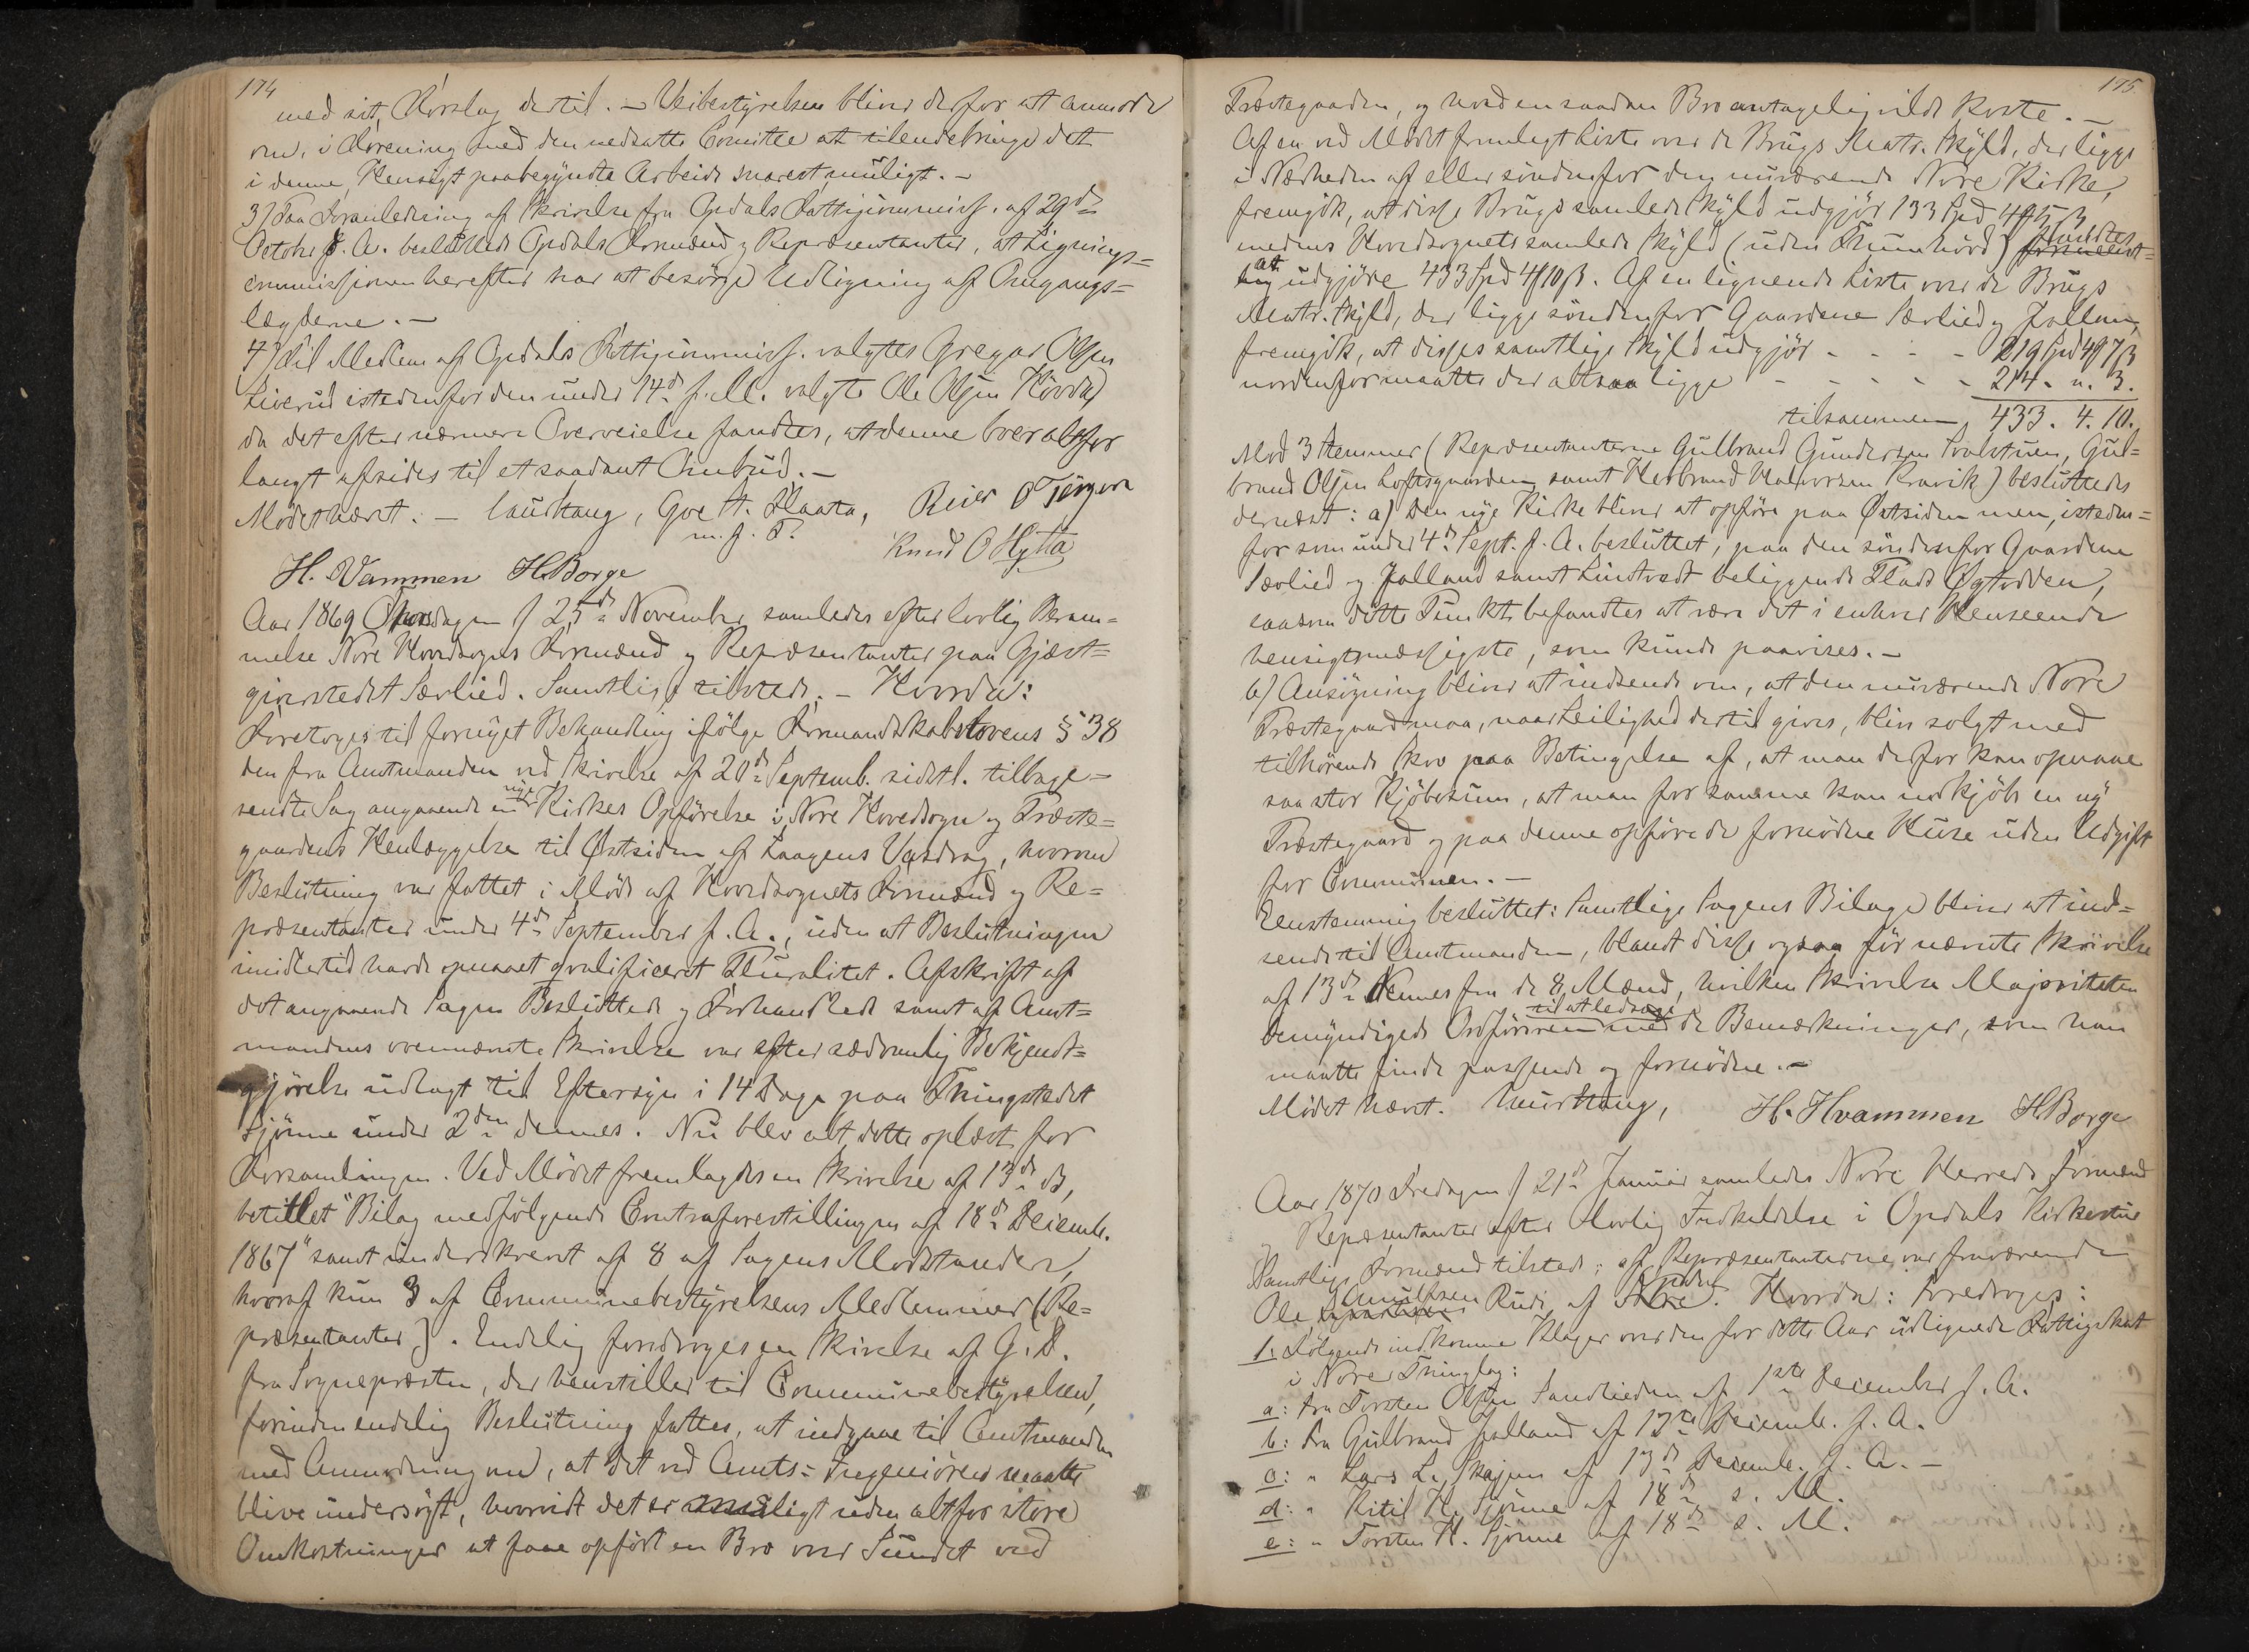 174
med sit Forslag dertil. — Veibestyrelsen bliver derfor at anmode
om, i Forening med den nedsatte Comitee at tilendebringe det
i denne Hensigt paabegyndte Arbeide snarest muligt. —
3) Paa Foranledning af Skrivelse fra Opdals Fattigcommiss. af 29de
October d. A. besluttede Opdals Formænd og Repræsentanter, at Lignings-
commissionen herefter har at besørge Udligning af Omgangs-
lægderne. —
4) Til Medlem af Opdals Fattigcommiss. valgtes Gregar Olsen
Liverud istedenfor den under 14de f. M. valgte Ole Olsen Hovda,
da det efter nærmere Overveielse fandtes, at denne boer altfor
langt afsides til et saadant Ombud. —
Mødet hævet. — Laurhaug, Goe H. Flaata, Reier O Tjøgen
m. f. P. Knud O Hytta
H. Vammen H. Borge
Aar 1869 Thorsdagen d 25de November samledes efter lovlig Beram-
melse Nore Hovedsogns Formænd og Repræsentanter paa Gjæst-
giverstedet Sævlied. Samtlige tilstede. — Hvorda:
Foretoges til fornyet Behandling ifølge Formandskabslovens § 38
den fra Amtmanden ved Skrivelse af 20de Septemb. sidstl. tilbage-
sendte Sag angaaende en ny Kirkes Opførelse i Nore Hovedsogn og Præste-
gaardens Henlæggelse til Østsiden af Laagens Vasdrag, hvorom
Beslutning var fattet i Møde af Hovedsognets Formænd og Re-
præsentanter under 4de September d. A., uden at Beslutningen
imidlertid havde opnaaet qvalificeret Pluralitet. Afskrift af
det angaaende Sagen Besluttede og Forhandlede samt af Amt-
mandens ovennævnte Skrivelse var efter sædvanlig Bekjendt-
gjørelse udlagt til Eftersyn i 14 Dage paa Thingstedet
Sjønne under 2den dennes. Nu blev alt dette oplæst for
Forsamlingen. Ved Mødet fremlagdes en Skrivelse af 13de ds,
betitlet "Bilag medfølgende Contraforestillingen af 18de Decemb.
1867" samt underskrevet af 8 af Sagens Modstandere,
hvoraf kun 3 af Communebestyrelsens Medlemmer (Re-
præsentanter). Endelig foredroges en Skrivelse af G. D.
fra Sognepræsten, der henstiller til Communebestyrelsen,
forinden endelig Beslutning fattes, at indgaae til Amtmanden
med Anmodning om, at det ved Amts-Ingeniøren maatte
blive undersøgt, hvorvidt det er muligt uden altfor store
Omkostninger at faae opført en Bro over Sundet ved
175
Præstegaarden, og hvad en saadan Bro antagelig vilde koste. —
Af en ved Mødet fremlegt Liste over de Brugs Matr. Skyld, der ligge
i Nærheden af eller søndenfor den nuværende Nore Kirke,
fremgik, at disse Brugs samlede Skyld udgjør 133 Spd 4 Ø 5 ß
medens Hovedsognets samlede Skyld (uden Thunhovd) fandtes
at udgjøre 433 Spd 4 Ø 10 ß. Af en lignende Liste over de Brugs
Matr. Skyld, der ligge søndenfor Gaardene Sævlied og Jalland,
fremgik, at disses samtlige Skyld udgjør - - - - 219 Spd 4 Ø 7 ß
nordenfor maatte der altsaa ligge - - - - - 214. „ 3.
tilsammen 433. 4. 10.
Mod 3 Stemmer (Repræsentanterne Gulbrand Gundersen Tralstuen, Gul-
brand Olsen Loftsgaarden samt Herbrand Halvorsen Kravik) besluttedes
dernæst: a) Den nye Kirke bliver at opføre paa Østsiden men, isteden-
for som under 4de Sept. d. A. besluttet, paa den søndenfor Gaardene
Sævlied og Jalland samt Lindtvedt beliggende Plads Øgtodden,
saasom dette Punkt befandtes at være det i enhver Henseende
hensigtsmæssigste, som kunde paavises. —
b) Ansøgning bliver at indsende om, at den nuværende Nore
Præstegaard maa, naar Leilighed dertil gives, blive solgt med
tilhørende Skov paa Betingelse af, at man derfor kan opnaae
saa stor Kjøbesum, at man for samme kan indkjøbe en ny
Præstegaard og paa denne opføre de fornødne Huse uden Udgift
for Communen. —
Eenstemmig besluttet: Samtlige Sagens Bilage bliver at ind-
sende til Amtmanden, blandt disse ogsaa før nævnte Skrivelse
af 13de dennes fra de 8 Mænd, hvilken Skrivelse Majoriteten
bemyndigede Ordføreren til at ledsage med de Bemærkninger, som han
maatte finde passende og fornødne. —
Mødet hævet. Laurhaug, H. Hvammen H. Borge
Aar 1870 Fredagen d 21de Januar samledes Nore Herreds Formænd
og Repræsentanter efter lovlig Indkaldelse i Opdals Kirkestue
Samtlige Formænd tilstede; af Repræsentanterne var fraværende
Ole Amulfsen Rudi af Nore. Hvorda: Foredroges:
1: Følgende indkomne Klager over den for dette Aar udlignede Fattigskat
i Nore Thinglag:
a: Fra Torsten Olsen Sandlieden af 1ste December f. A.
b: Fra Gulbrand Jalland af 12te Decemb. f. A.
c: „ Lars L. Skajem af 13de Decemb. f. A. —
d: „ Kitil H. Sjønne af 18de s. M.
e: „ Torsten H. Sjønne af 18de s. M.